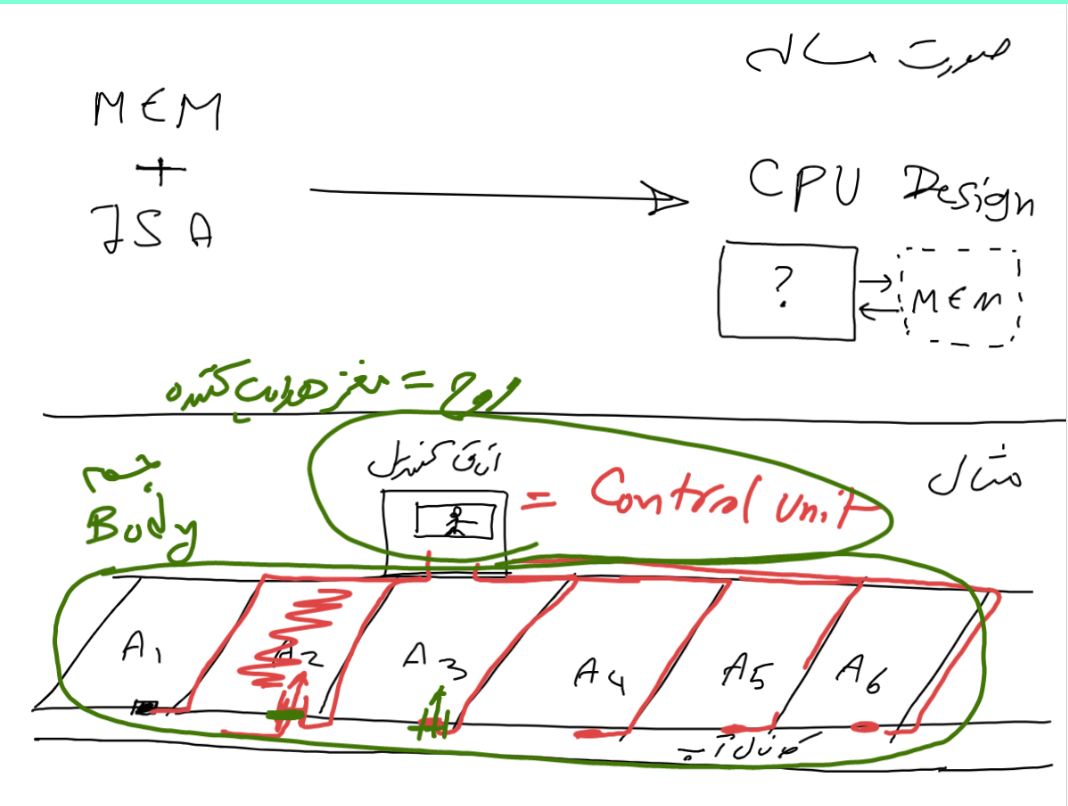 صورت مساله
MEM
+
ISA
CPU Design
?
MEM
روح = مغز هدایت کننده
مثال
جسم
Body
اتاق کنترل
= Control Unit
A1
A2
A3
A4
A5
A6
کانال آب